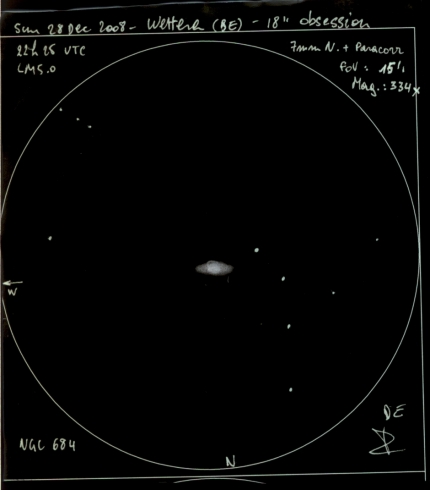 Sun 28 Dec 2008 - Wetteren (BE) - 18" obsession
22h 25 UTC
LM5.0
7mm N. + Paracorr
FoV : 15'
Mag. : 334x
W
NGC 684
N
DE